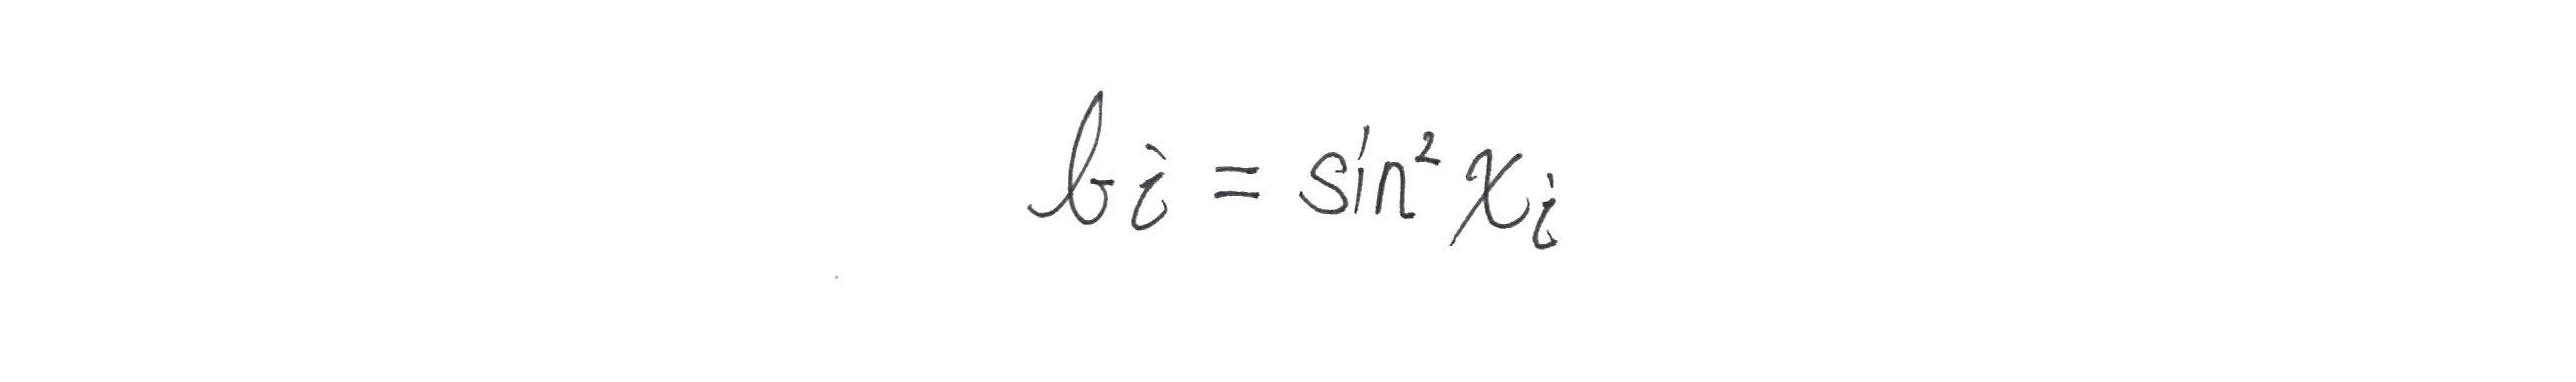 bᵢ = sin² xᵢ